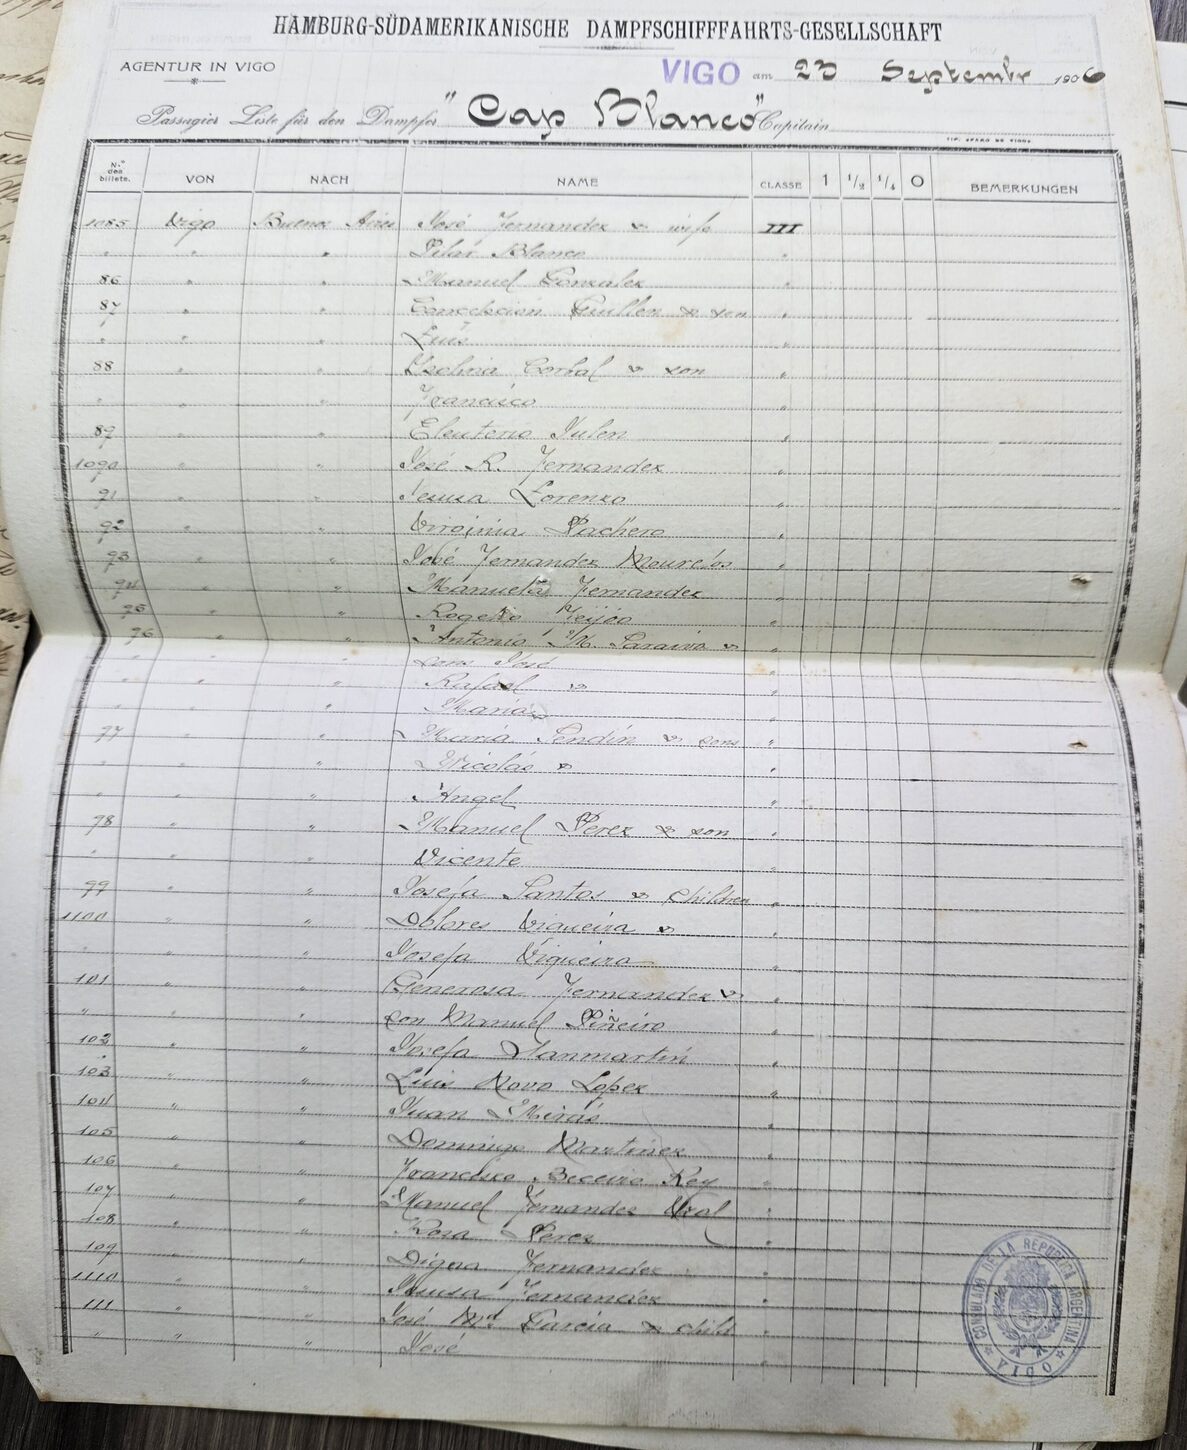 HAMBURG-SÜDAMERIKANISCHE DAMPFSCHIFFFAHRTS-GESELLSCHAFT
AGENTUR IN VIGO VIGO am 23 September 1906
Passagier Liste für den Dampfer "Cap Blanco" Capitain
N.º des billets. VON NACH NAME CLASSE 1 1/2 1/4 O BEMERKUNGEN
1085 Vigo Buenos Aires José Fernandez & wife III
" " " Pilar Blanco "
86 " " Manuel Gonzalez
87 " " Concepción Guillen & son "
" " " Luis "
88 " " & son "
" " " Francisco "
89 " " Eleuterio "
1090 " " José R. Fernandez "
91 " " Jesusa Lorenzo "
92 " " Virginia Pacheco "
93 " " José Fernandez "
94 " " Manuela Fernandez "
95 " " Rogelio Feijóo "
96 " " Antonio M. Saraiva & "
" " " sons José "
" " " Rafael & "
" " " Maria & "
97 " " Maria Sendín & sons "
" " " Nicolás & "
" " " Angel "
98 " " Manuel Perez & son "
" " " Vicente "
99 " " Josefa Santos & children "
1100 " " Dolores Vigueira & "
" " " Josefa Vigueira
101 " " Generosa Fernandez & "
" " " son Manuel Piñeiro "
102 " " Josefa Sanmartín "
103 " " Luis Novo Lopez "
104 " " Juan Mirás "
105 " " Domingo Martinez
106 " " Francisco Beceiro Rey "
107 " " Manuel Fernandez "
108 " " Rosa Perez "
109 " Digna Fernandez "
1110 " " Fernandez "
111 " " José Mª Garcia & child "
" " " José "
CONSULADO DE LA REPUBLICA ARGENTINA